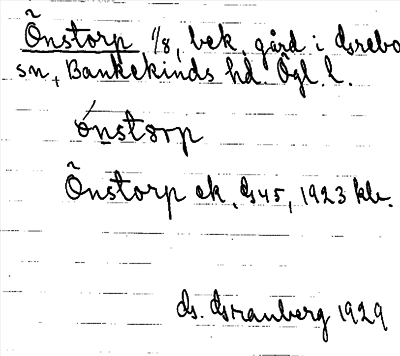 Önstorp 1/8, bek. gård i Grebo
sn, Bankekinds hd. Ögl. l.
ónstorp
Önstorp ek. G45, 1923 kb.
G. Granberg 1929